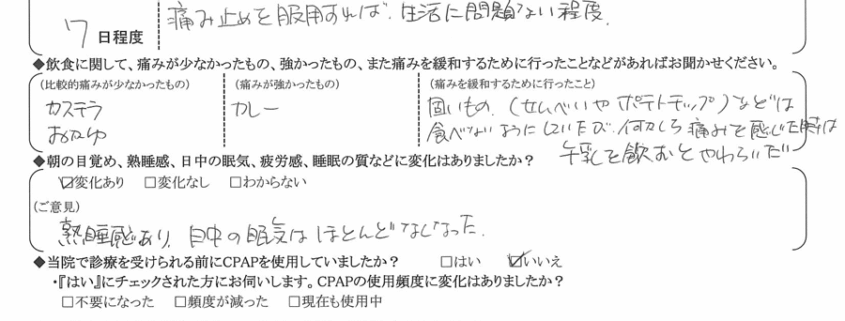 痛み止めを服用すれば、生活に問題ない程度。
7 日程度
◆飲食に関して、痛みが少なかったもの、強かったもの、また痛みを緩和するために行ったことなどがあればお聞かせください。
(比較的痛みが少なかったもの) (痛みが強かったもの) (痛みを緩和するために行ったこと)
カステラ カレー 固いもの、(せんべいや ポテトチップ)などは
おかゆ 食べないようにしていたが、何かしら痛みを感じた時は
牛乳を飲むとやわらいだ
◆朝の目覚め、熟睡感、日中の眠気、疲労感、睡眠の質などに変化はありましたか?
☑変化あり □変化なし □わからない
(ご意見)
熟睡感があり、日中の眠気はほとんどなくなった。
◆当院で診療を受けられる前にCPAPを使用していましたか? □はい ☑いいえ
・『はい』にチェックされた方にお伺いします。CPAPの使用頻度に変化はありましたか?
□不要になった □頻度が減った □現在も使用中